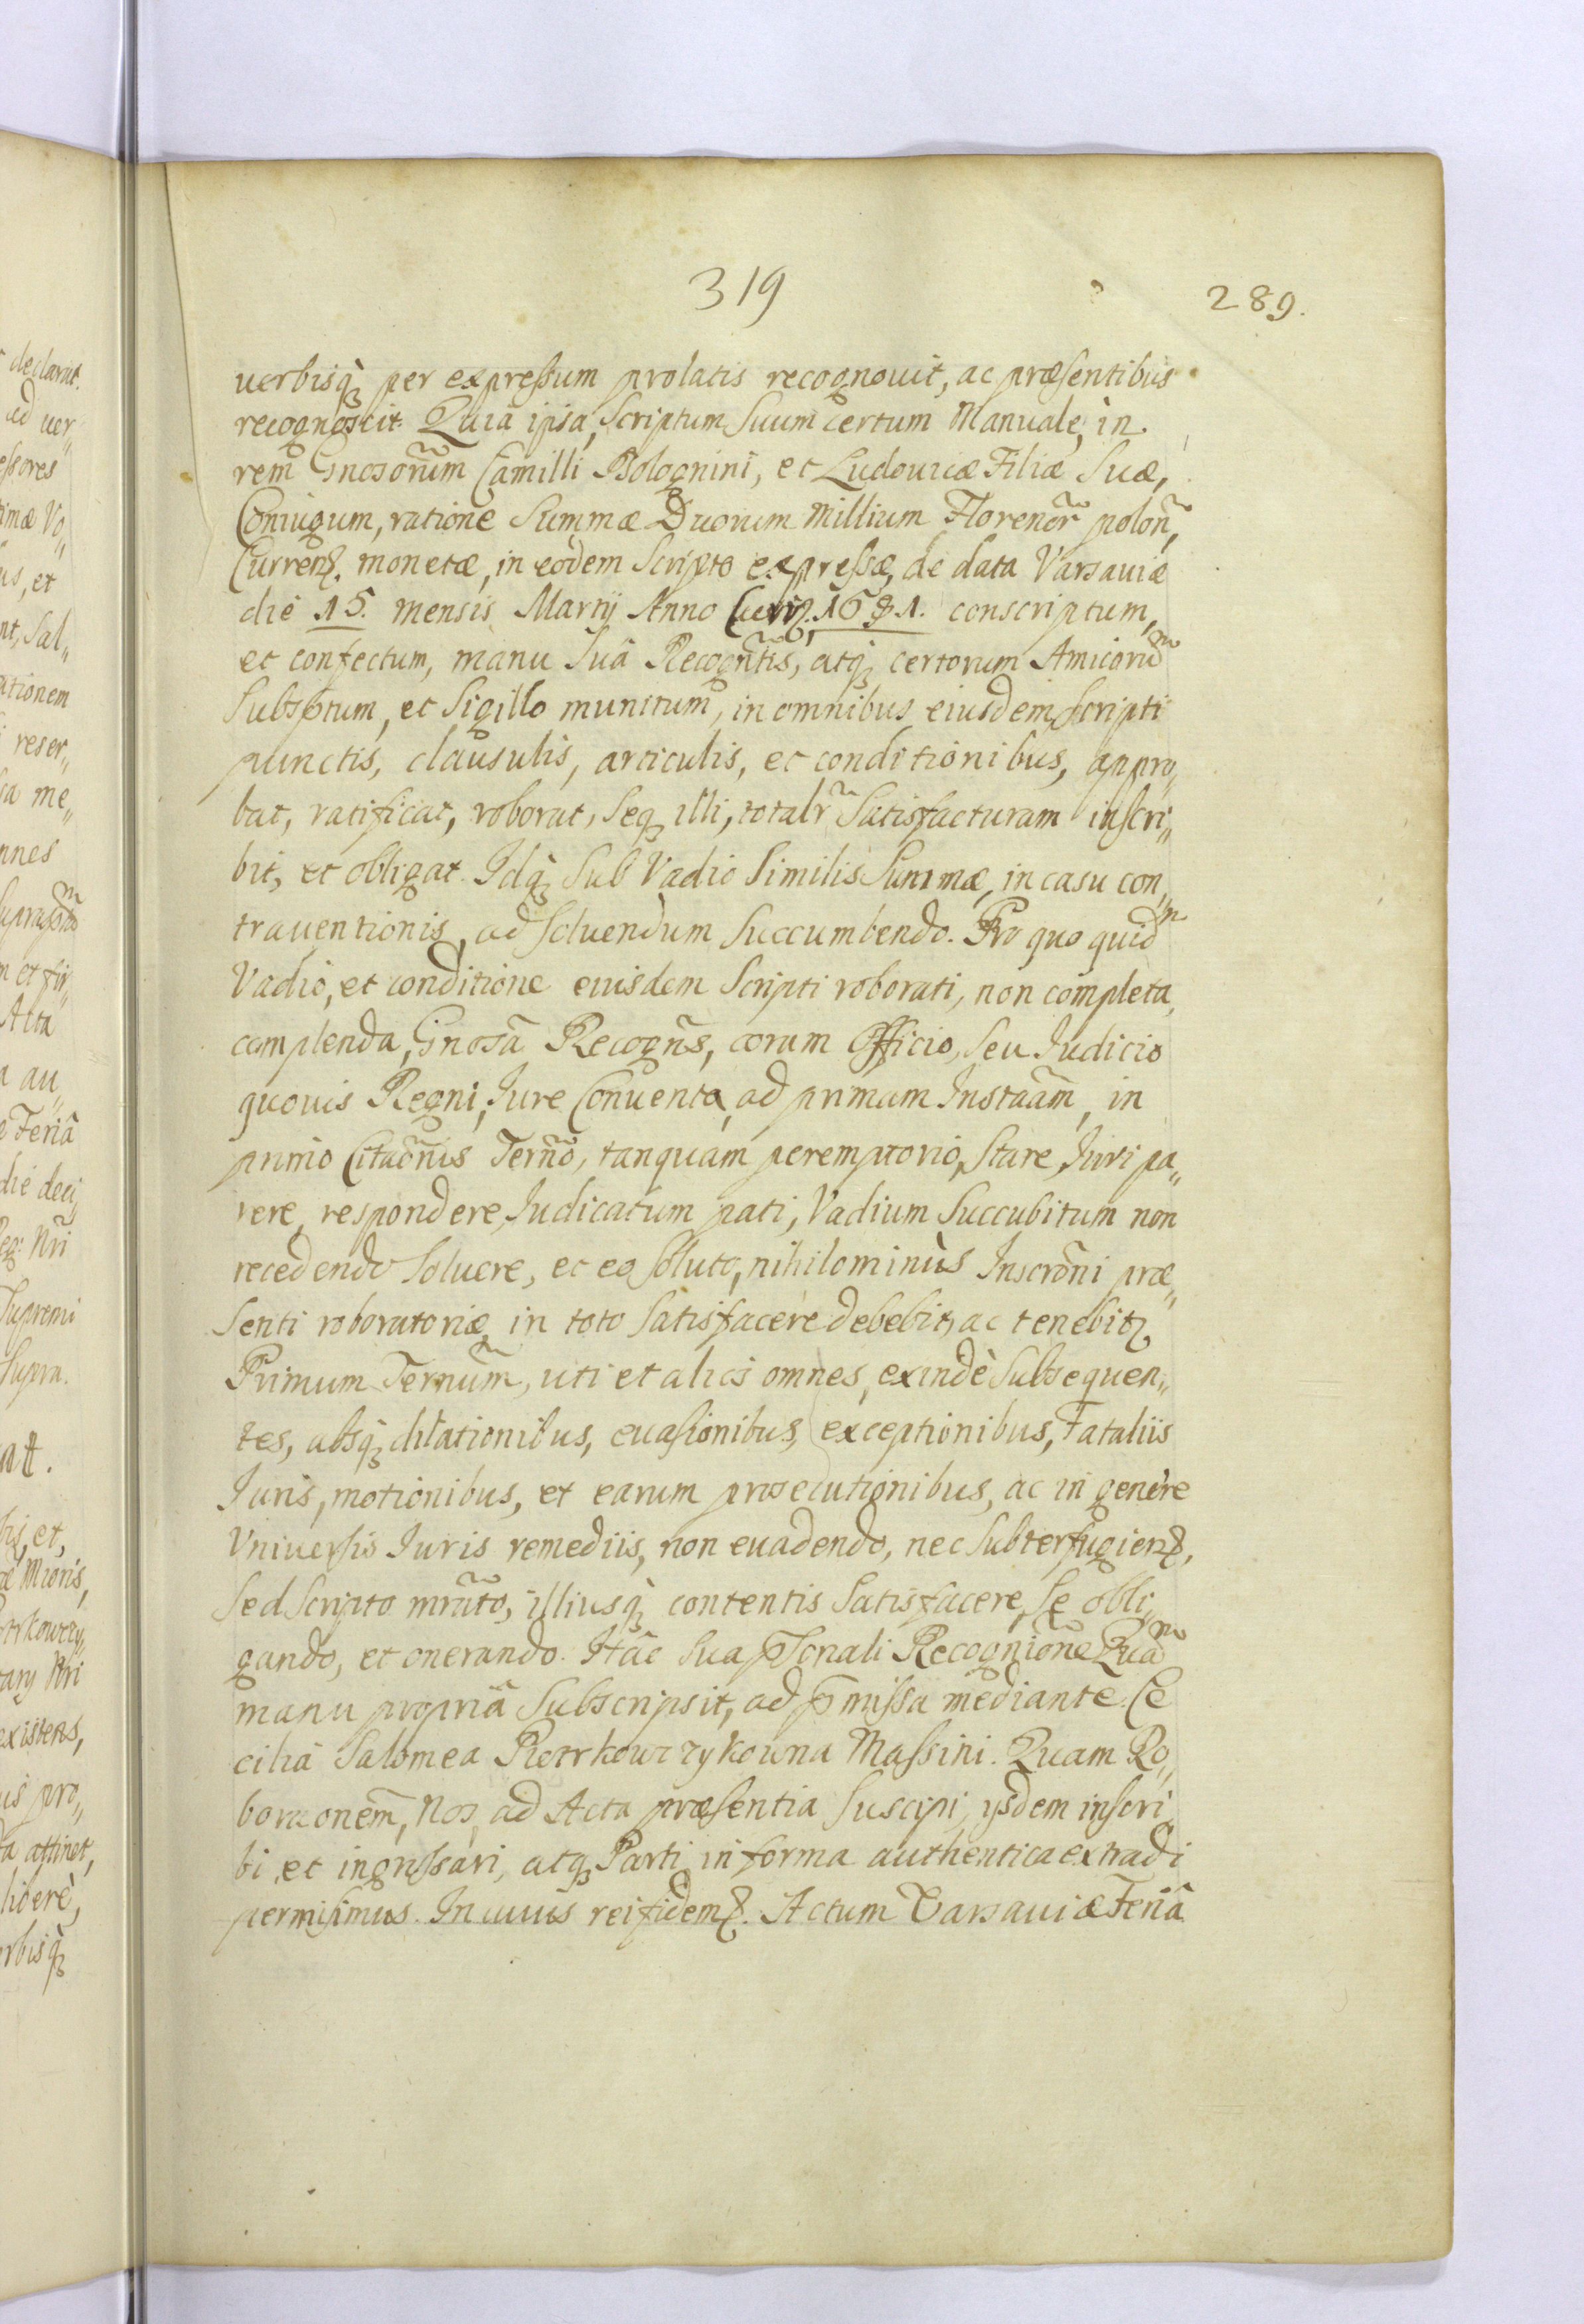 319
289.
uerbisq̀ꝫ per expressum prolatis recognouit, ac præsentibus
recognoscit. Quia ipsa, Scriptum Suum certum Manuale, in
rem Gnosorũm Camilli Bolognini, et Ludouicæ Filiæ Suæ,
Coniugum, ratione Summæ Duorum Millium Florenor̃ polon̄,
Currenꝫ. monetæ, in eodem Scripto expressæ, de data Varsauiæ
die 15. mensis Martij Anno 1681. conscriptum,
et confectum, manu Suâ Recogñtis, atqꝫ certorum Amicorũ
Subsptum, et Sigillo munitum, in omnibus eiusdem Scripti
punctis, clausulis, articulis, et conditionibus, appro„
bat, ratificat, roborat, Seqꝫ illi, totalr̃ Satisfacturam inscri„
bit, et obligat. Idq̀ꝫ Sub Vadio Similis Summæ, in casu con„
trauentionis, ad Soluendum Succumbendo. Pro quo quid̃
Vadio, et conditione eiusdem Scripti roborati, non completa,
complenda, Gnosã Recogñs, coram Officio, Seu Iudicio
quouis Regni, Iure Conuenta, ad primam Instãam, in
primo Citãonis Terño, tanquam peremptorio, Stare, Iuri pa„
rere, respondere, Iudicatum pati, Vadium Succubitum non
recedendo Soluere, et eo Soluto, nihilominùs Inscrõni præ„
Senti roboratoriæ in toto Satisfacere debebit, ac tenebitꝫ
Primum Ternũm, uti et alios omnes, exindè Subsequen„
tes, absq̀ꝫ dilationibus, euasionibus, exceptionibus, Fataliis
Iuris, motionibus, et earum prosecutionibus, ac in genère
Vniuersis Iuris remediis, non euadendo, nec Subterfugienꝫ,
Sed Scripto mrũto, illiusq̀ꝫ contentis Satisfacere, Se obli„
gando, et onerando. Hâc Sua pSonali Recogniõne Quã
manu propriâ Subscripsit, ad p̃missa mediante. Ce
cilia Salomea Pietrkowczykowna Massini. Quam Ro„
boraonem̃, Nos, ad Acta præsentia Suscipi, ijsdem inscri„
bi, et ingrossari, atqꝫ Parti in forma authentica extradi
permisimus. In cuius rei fidemꝫ. Actum Varsauiæ Feriâ